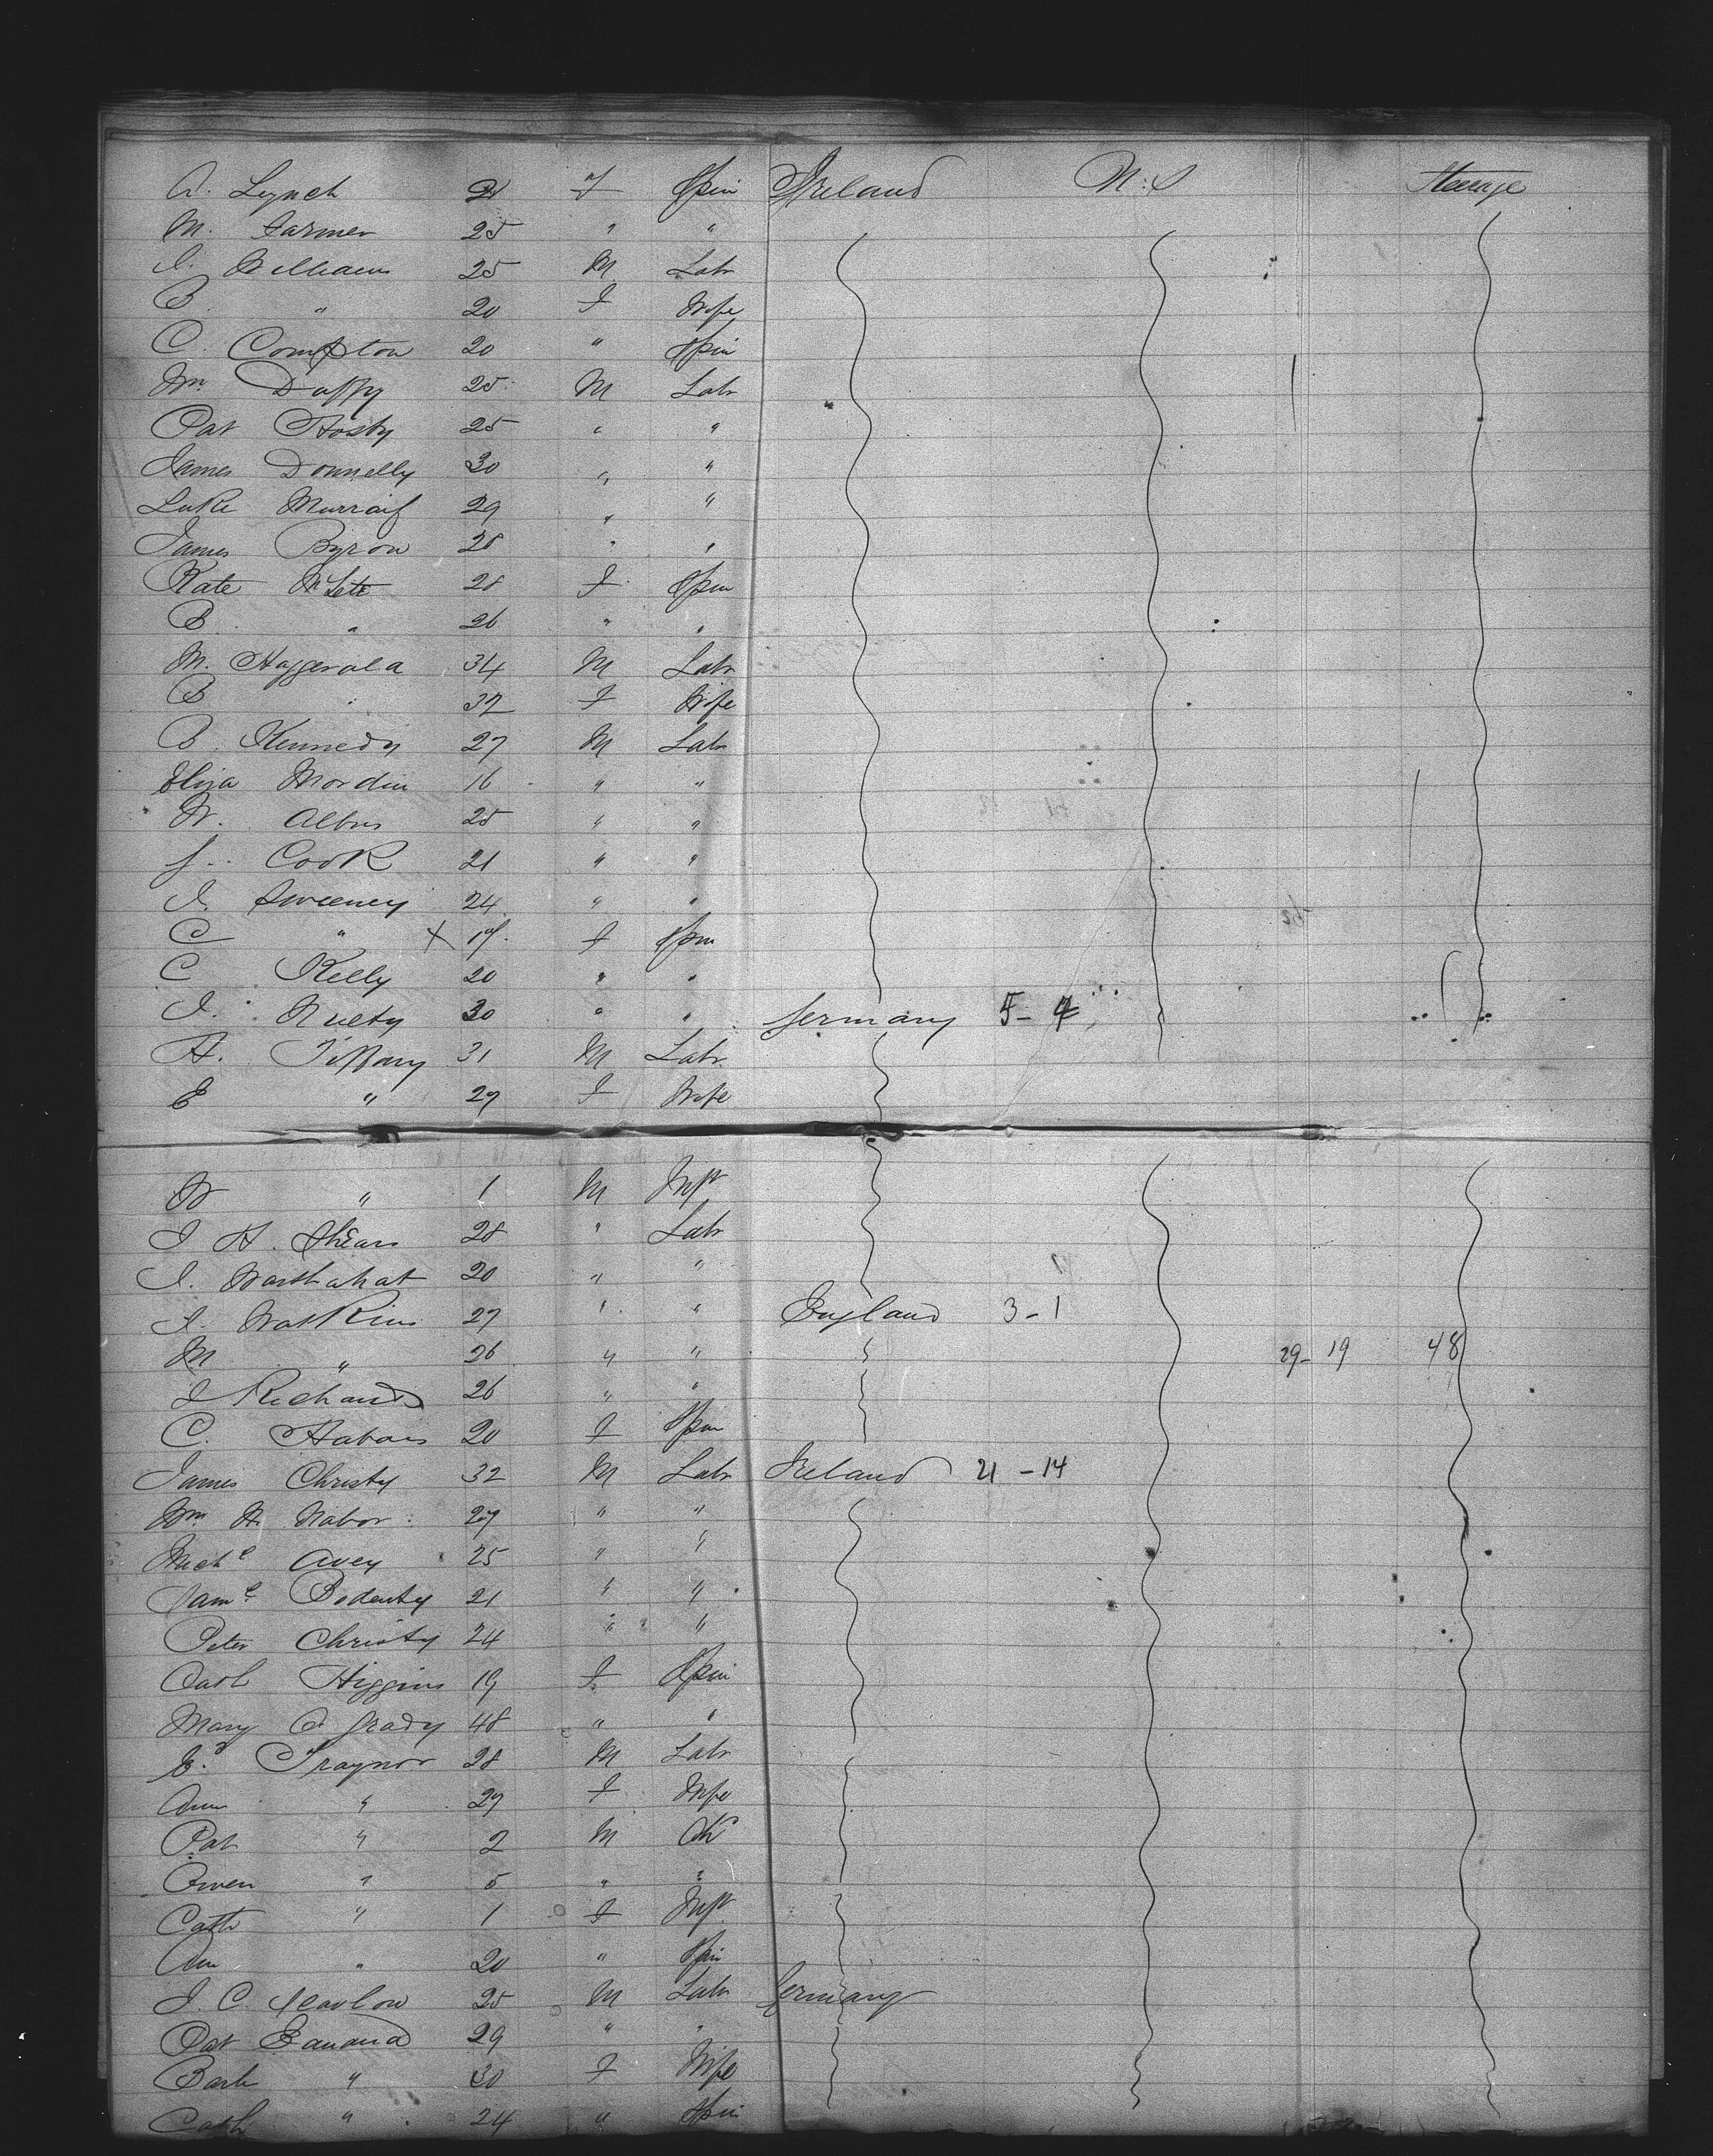 A. Lynch 21 F Spin Ireland U.S Steerge
M. Farmer 25 " "
J. Williams 25 M Labr
B. " 20 F Wife
C. Compton 20 " Spin
Wm Duffy 25 M Labr
Pat Hosty 25 " "
James Donnelly 30 " "
Luke Murray 29 " "
James Byron 28 " "
Kate 28 F Spin
B. " 26 " "
M. 34 M Labr
B " 32 F Wife
B. Kennedy 27 M Labr
Eliza Mordin 16 " "
W. 25 " "
J. Cook 21 " "
J. Sweeney 24 " "
C " X 17 F Spin
C Kelly 20 " "
J. 30 " " Germany 5-4
H. Tiffany 31 M Labr
E " 29 F Wife
W " 1 M Inft
J H. Shears 28 " Labr
J. 20 " "
J. Watkins 27 " " England 3-1
M " 26 " " 29-19 48
J Richards 26 " "
C. 20 F Spin
James Christy 32 M Labr Ireland 21-14
Wm H. Nabor 29 " "
Michl Avey 25 " "
Saml 21 " "
Peter Christy 24 " "
Cath Higgins 19 F Spin
Mary O Grady 48 " "
Ed. Traynor 28 M Labr
Ann " 27 F Wife
Pat " 2 M Chd
Owen " 5 " "
Cath " 1 F Inft
Ann " 20 " Spin
J. C. 25 M Labr Germany
Pat 29 " "
Barb " 30 F Wife
Cath " 24 " Spin